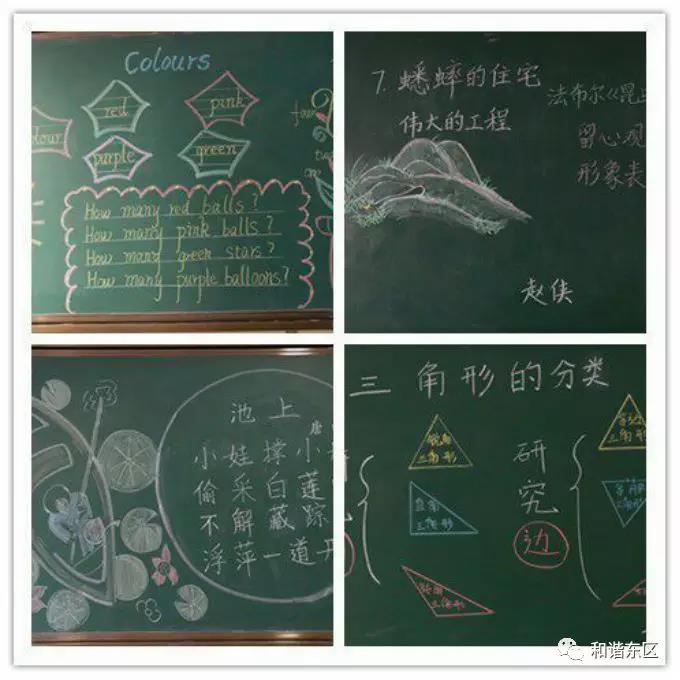 Colours
red
pink
colour
purple
green
How many red balls?
How many pink balls?
How many green stars?
How many purple balloons?
7.蟋蟀的住宅
伟大的工程
法布尔《昆虫
留心观
形象表
赵侠
池上
唐
小娃撑小
偷采白莲
不解藏踪
浮萍一道开
三角形的分类
锐角
三角形
直角
三角形
钝角
三角形
研究
边
等边
三角形
等腰
三角形
和谐东区